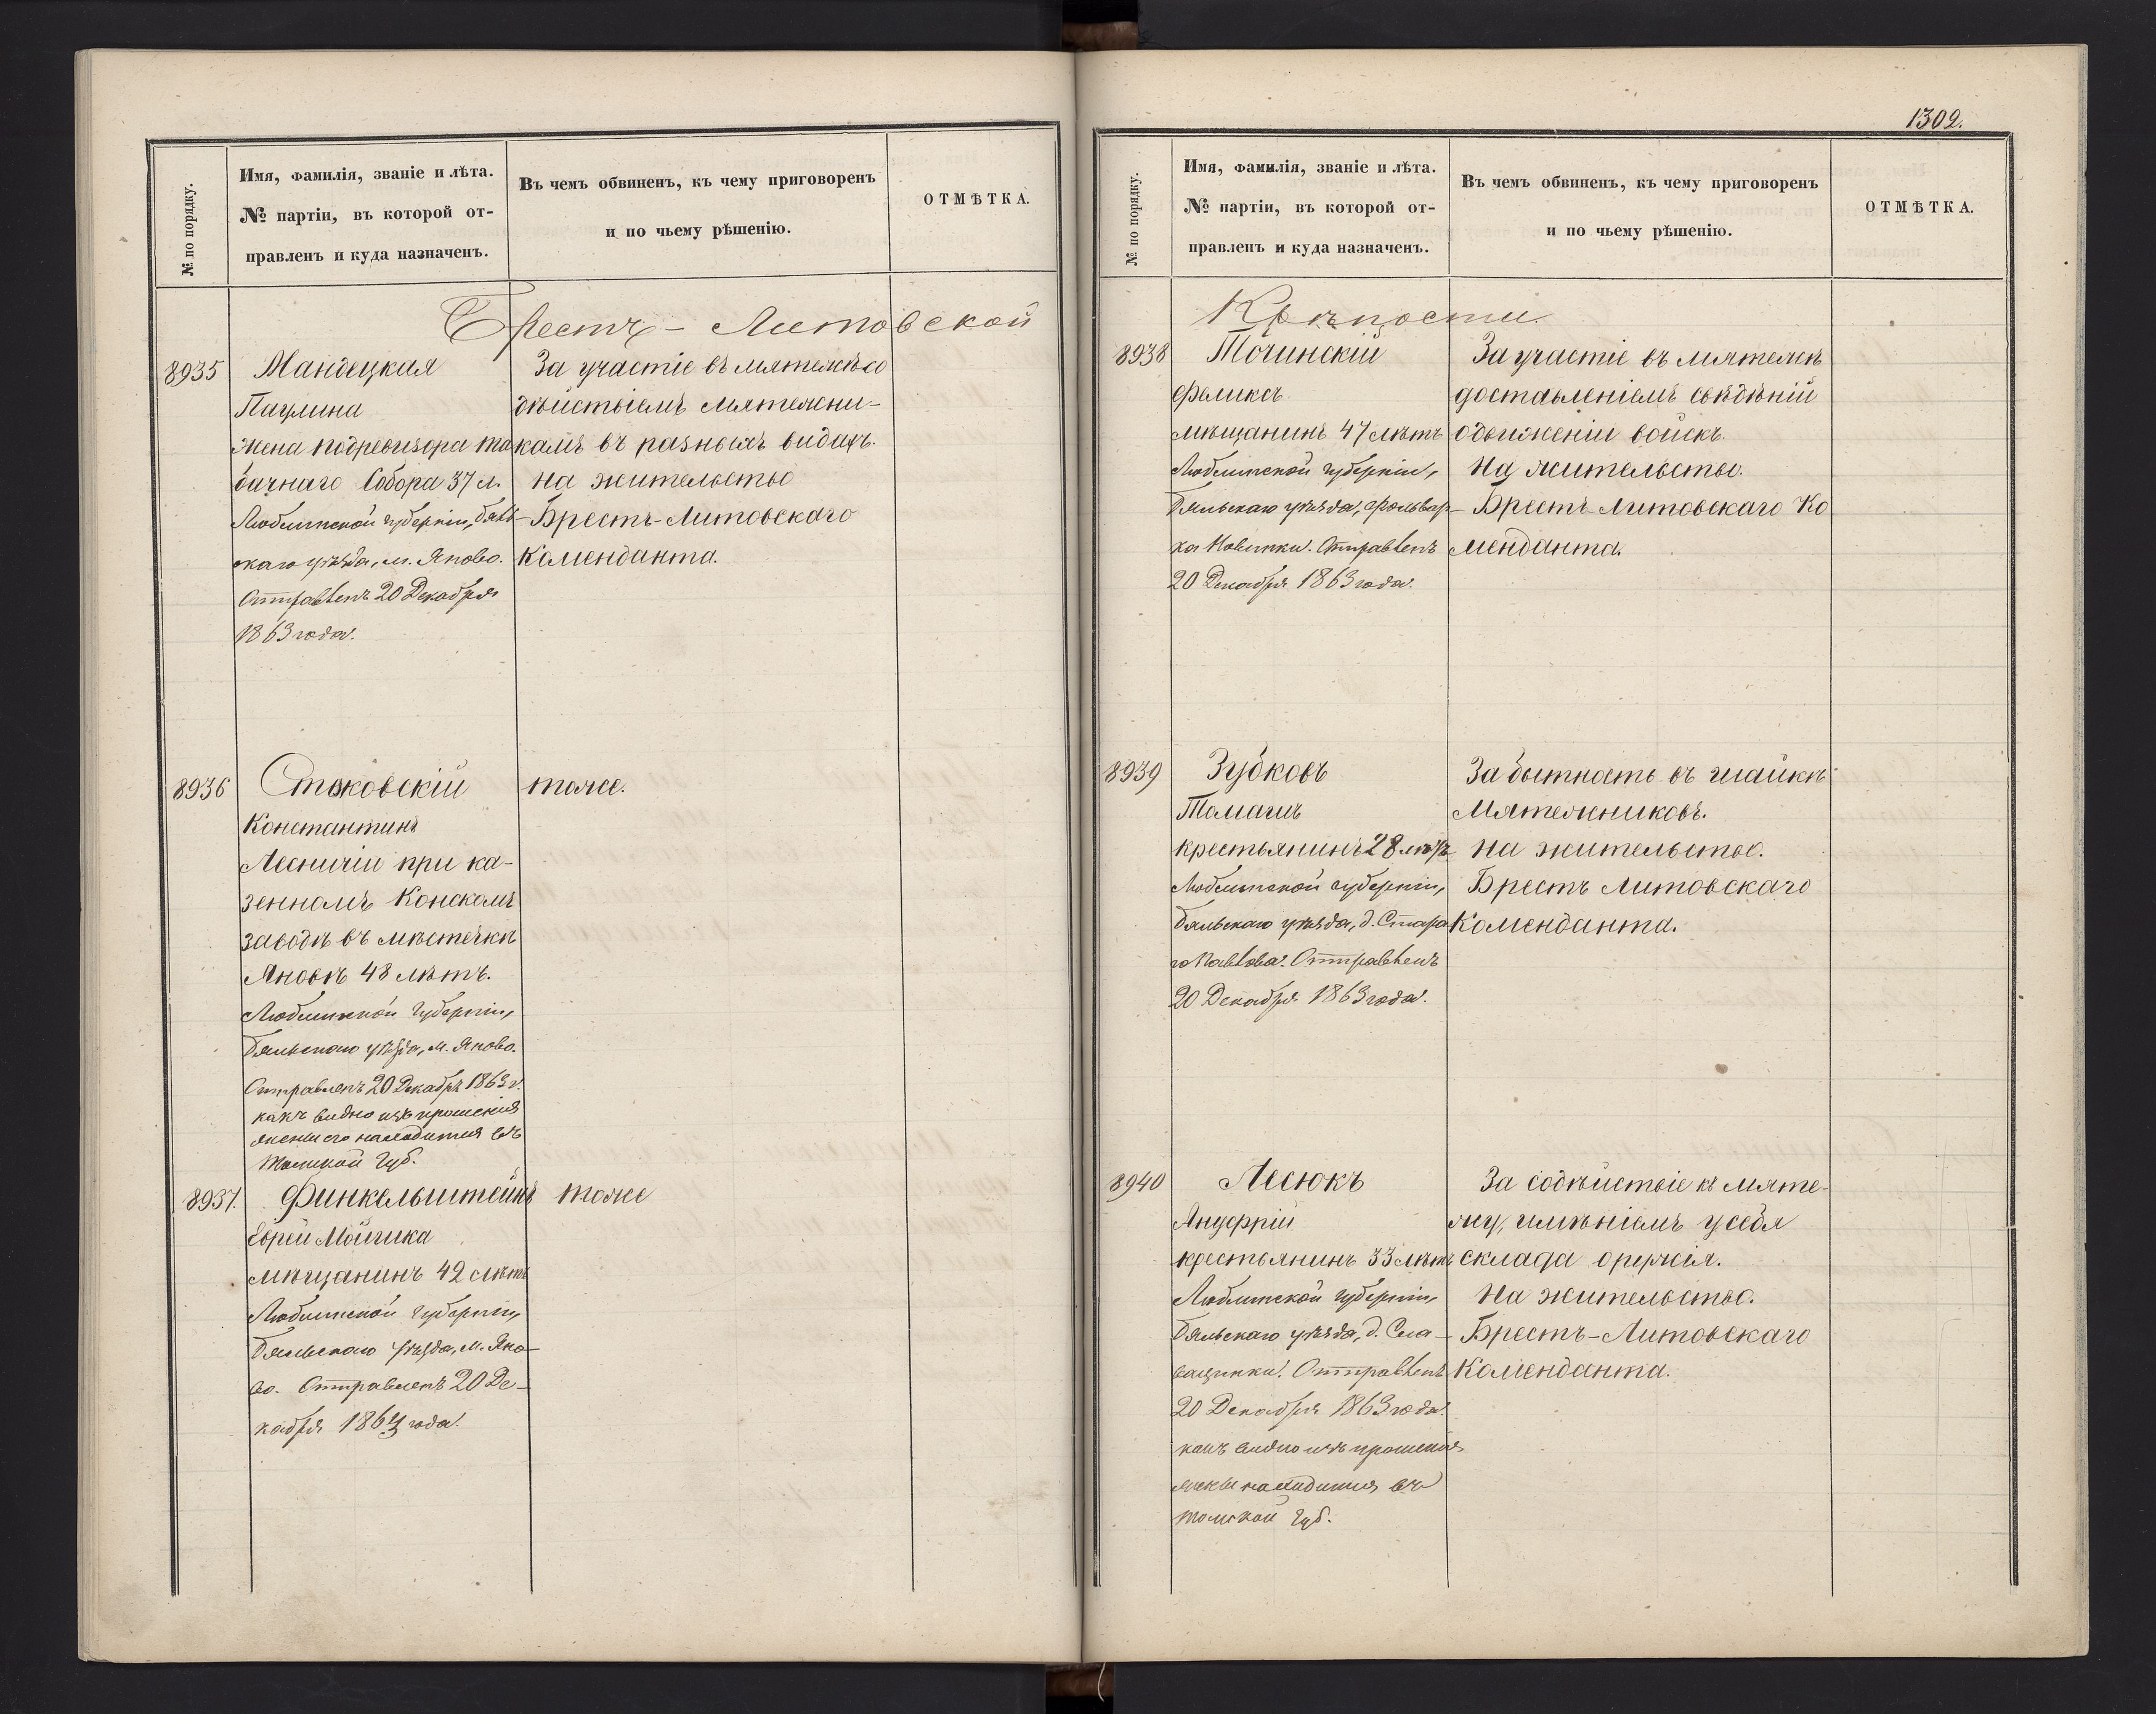 1302.
№ по порядку.
Имя, фамилія, званіе и лѣта.
№ партіи, въ которой от-
правленъ и куда назначенъ.
Въ чемъ обвиненъ, къ чему приговоренъ
и по чьему рѣшенію.
ОТМѢТКА.
Брестъ-Литовской
8935
Мандецкая
Паулина
жена подревизора та
бачнаго Сбора 37 л.
Люблинской губерніи, Бяль-
скаго уѣзда, м. Яново.
Отправленъ 20 Декабря
1863 года.
За участіе въ мятежѣ со
дѣйствіемъ мятежни-
камъ въ разныхъ видахъ.
на жительство
Брестъ-Литовскаго
Коменданта.
8936
Стаковскій
Константинъ
Лесничій при ка-
зенномъ Конскомъ
заводѣ въ мѣстечкѣ
Яновѣ 48 лѣтъ.
Люблинской губерніи,
Бяльскаго уѣзда, м. Яново.
Отправленъ 20 Декабря 1863 г.
какъ видно изъ прошенія
жены его находится въ
Томской Губ.
тоже.
8937.
Финкельштейнъ
Еврей Мошка
мѣщанинъ 42 лѣтъ
Люблинской губерніи,
Бяльскаго уѣзда, м. Яно-
во. Отправленъ 20 Де-
кабря 1863 года.
тоже
№ по порядку.
Имя, фамилія, званіе и лѣта.
№ партіи, въ которой от-
правленъ и куда назначенъ.
Въ чемъ обвиненъ, къ чему приговоренъ
и по чьему рѣшенію.
ОТМѢТКА.
Крѣпости
8938
Точинскій
Феликсъ
мѣщанинъ 47 лѣтъ
Люблинской губерніи,
Бяльскаго уѣзда, фольвар-
ка Новинки. Отправленъ
20 Декабря 1863 года.
За участіе въ мятежѣ
доставленіемъ свѣдѣній
о движеніи войскъ.
На жительство.
Брестъ Литовскаго Ко
менданта.
8939
Зубковъ
Томашъ
крестьянинъ 28 лѣтъ
Люблинской губерніи,
Бяльскаго уѣзда, д. Стара
го Павлова. Отправленъ
20 Декабря 1863 года.
За бытность въ шайкѣ
Мятежниковъ.
на жительство.
Брестъ Литовскаго
Коменданта.
8940
Лесюкъ
Ануфрій
крестьянинъ 33 лѣтъ
Люблинской губерніи,
Бяльскаго уѣзда, д. Сла-
вацинки. Отправленъ
20 Декабря 1863 года.
какъ видно изъ прошенія
жены находится въ
Томской Губ.
За содѣйствіе къ мяте-
жу, имѣніемъ у себя
склада оружія.
На жительство.
Брестъ-Литовскаго
Коменданта.